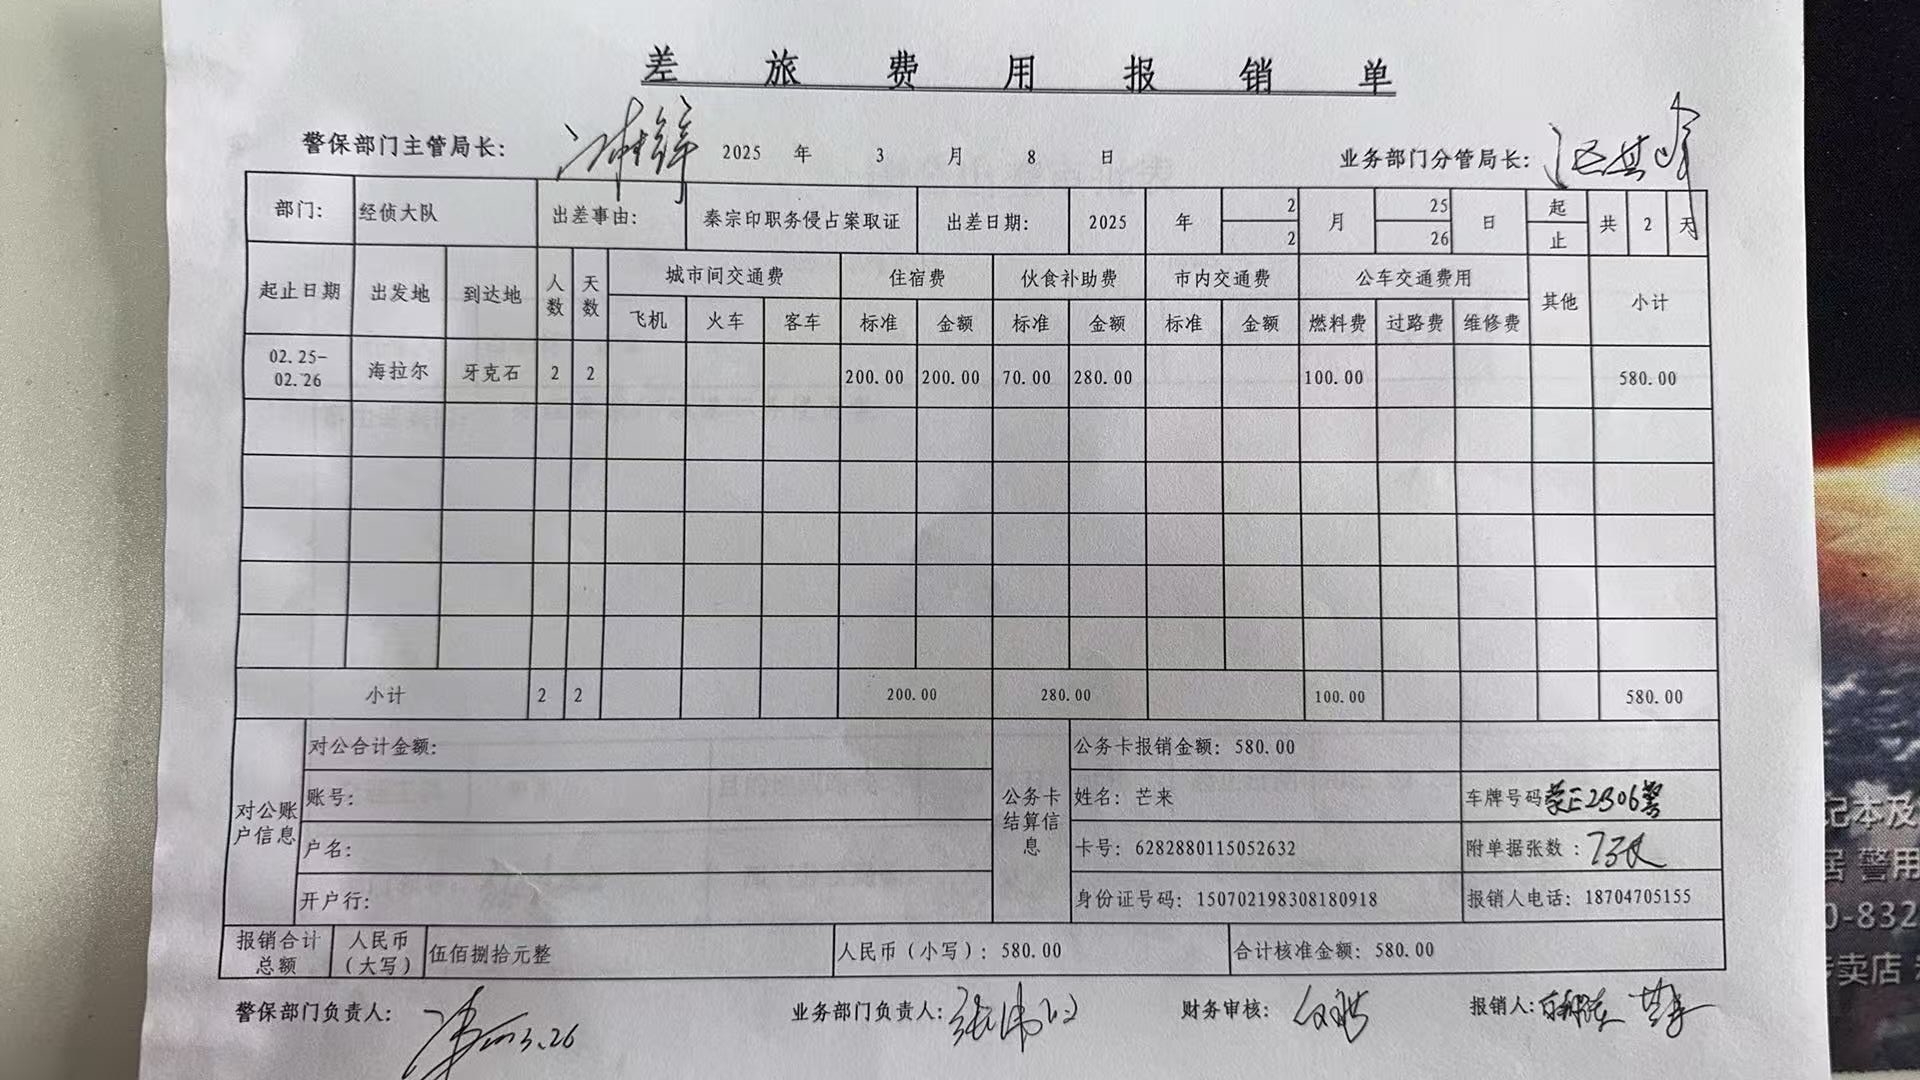 差旅费用报销单
警保部门主管局长： 2025 年 3 月 8 日 业务部门分管局长：
部门： 经侦大队 出差事由： 秦宗印职务侵占案取证 出差日期： 2025 年 2 月 25 日 起 共 2 天
2 26 止
起止日期 出发地 到达地 人数 天数 城市间交通费 住宿费 伙食补助费 市内交通费 公车交通费用 其他 小计
飞机 火车 客车 标准 金额 标准 金额 标准 金额 燃料费 过路费 维修费
02.25-02.26 海拉尔 牙克石 2 2 200.00 200.00 70.00 280.00 100.00 580.00
小计 2 2 200.00 280.00 100.00 580.00
对公账户信息 对公合计金额： 公务卡结算信息 公务卡报销金额：580.00
账号： 姓名：芒来 车牌号码 蒙E2306警
户名： 卡号：6282880115052632 附单据张数：
开户行： 身份证号码：150702198308180918 报销人电话：18704705155
报销合计总额 人民币（大写） 伍佰捌拾元整 人民币（小写）：580.00 合计核准金额：580.00
警保部门负责人： 3.26 业务部门负责人： 财务审核： 报销人：
记本及
警用
0-832
专卖店